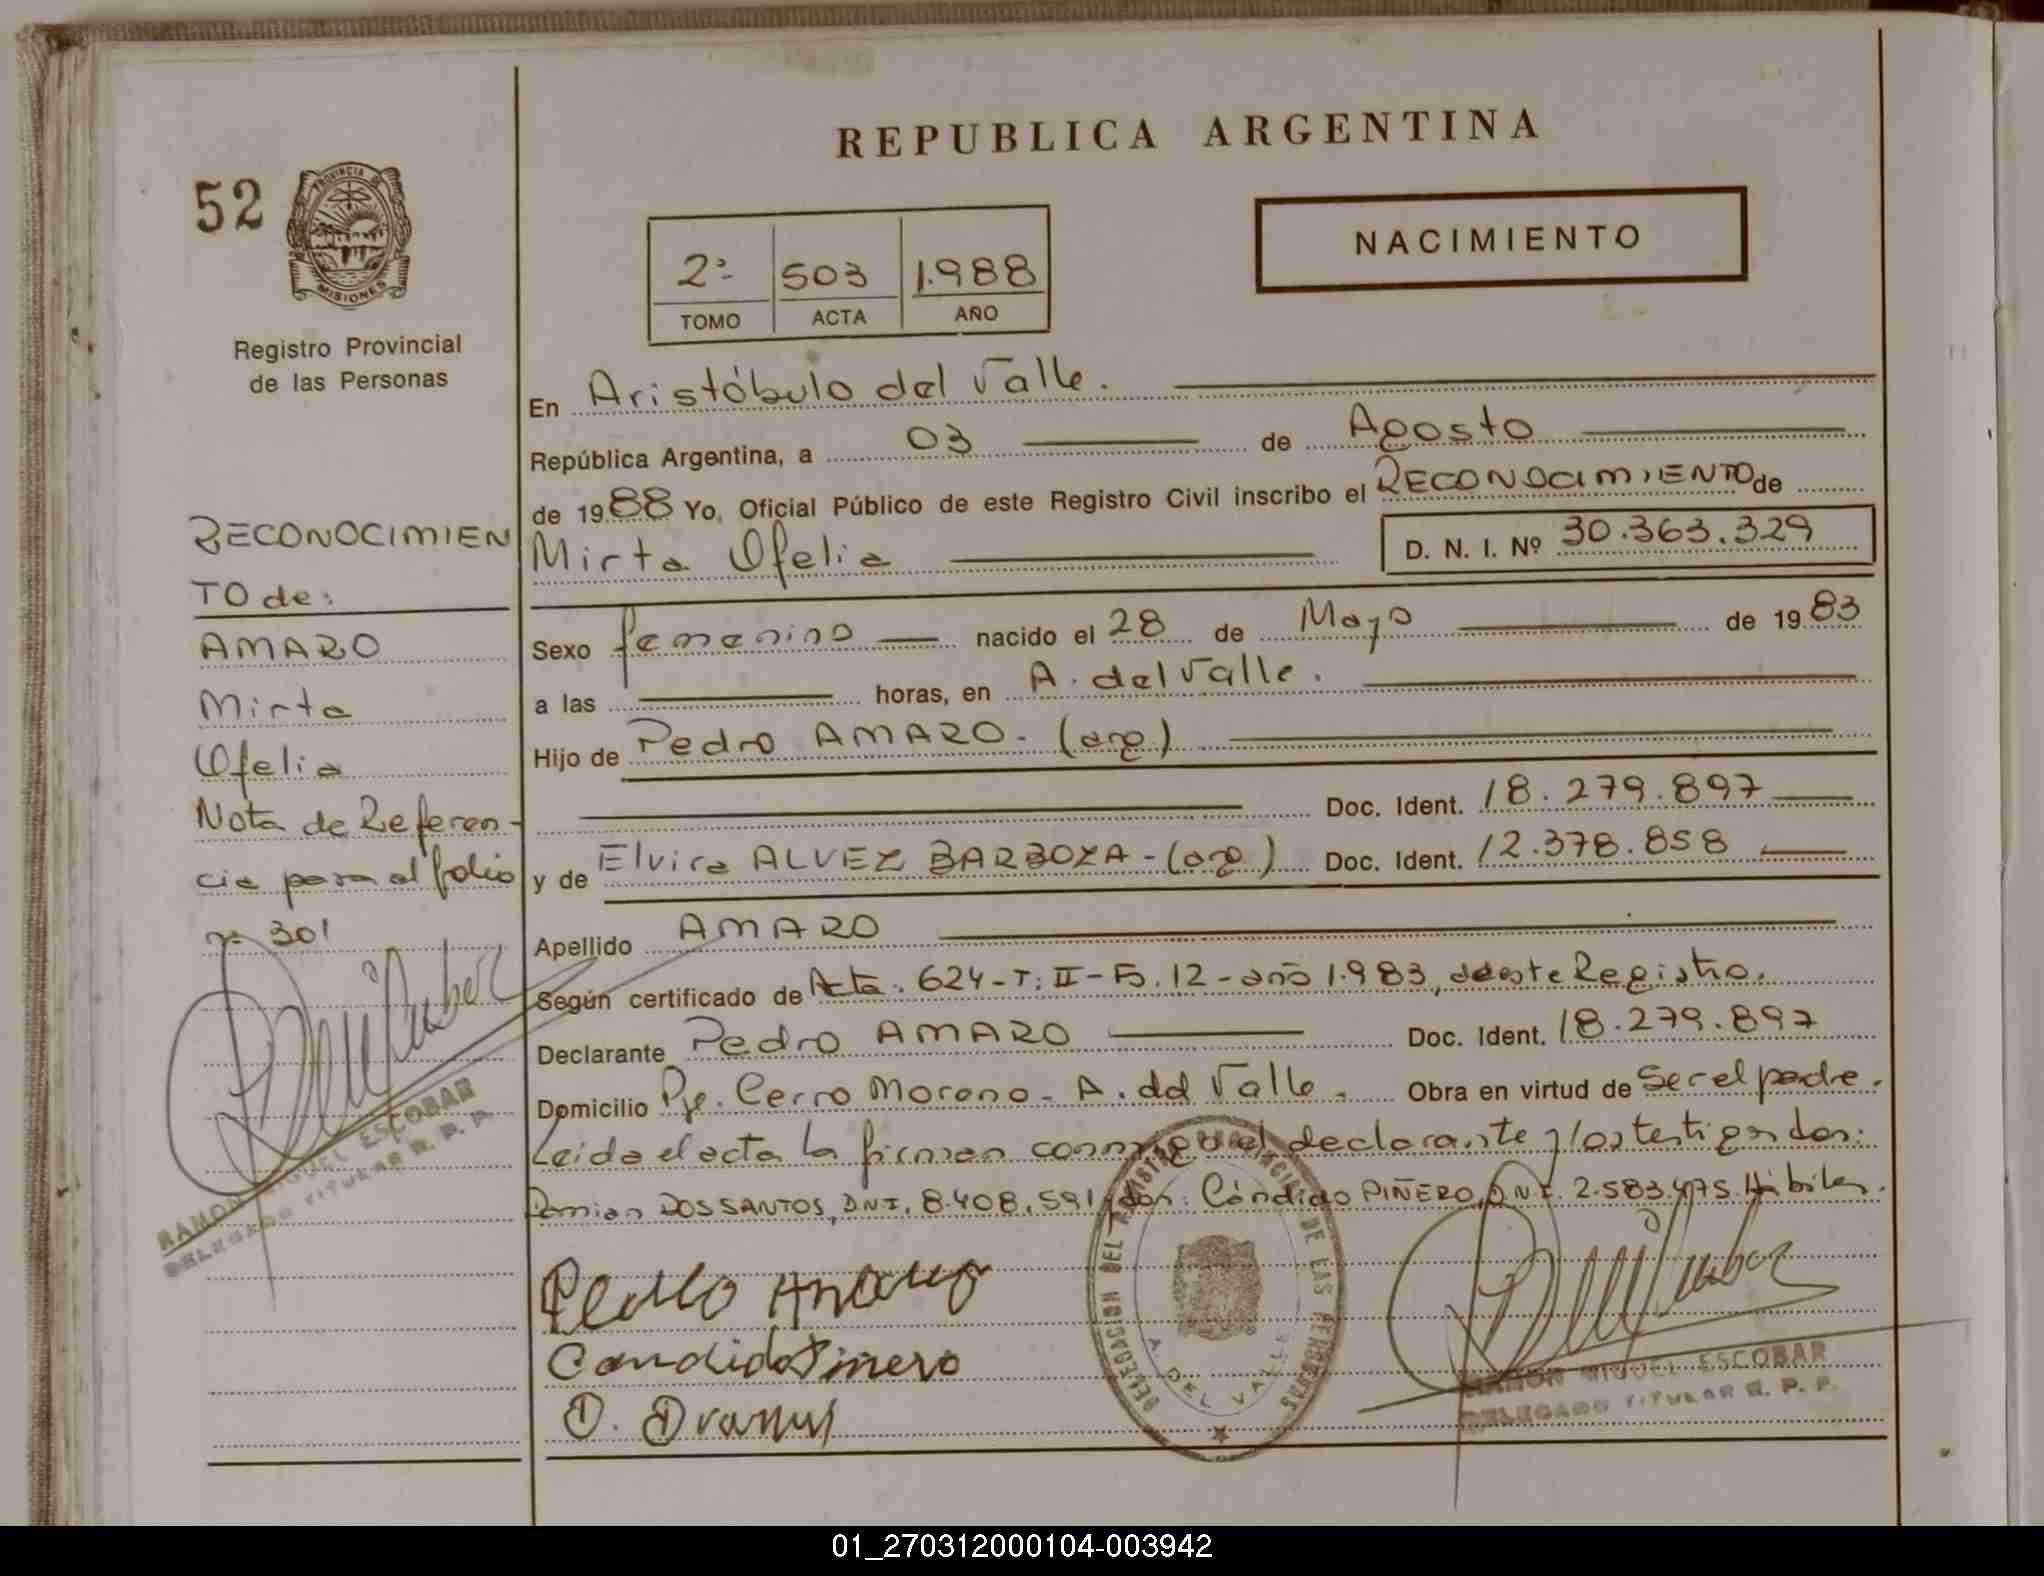 52
PROVINCIA DE
MISIONES
Registro Provincial
de las Personas
RECONOCIMIEN
TO de:
AMARO
Mirta
Ofelia
Nota de Referen-
cia para el folio
nº 301
RAMON MIGUEL ESCOBAR
DELEGADO TITULAR R. P. P.
REPUBLICA ARGENTINA
NACIMIENTO
2º 503 1.988
TOMO ACTA AÑO
En Aristóbulo del Valle.
República Argentina, a 03 de Agosto
de 1988 Yo, Oficial Público de este Registro Civil inscribo el RECONOCIMIENTO de
Mirta Ofelia D. N. I. Nº 30.363.329
Sexo femenino nacido el 28 de Mayo de 1983
a las horas, en A. del Valle.
Hijo de Pedro AMARO. (arg)
Doc. Ident. 18.279.897
y de Elvira ALVEZ BARBOZA - (arg.) Doc. Ident. 12.378.858
Apellido AMARO
Según certificado de Acta. 624 - T: II - Fº. 12 - año 1.983, de este Registro.
Declarante Pedro AMARO Doc. Ident. 18.279.897
Domicilio Pje. Cerro Moreno - A. del Valle. Obra en virtud de Ser el padre.
Leida el acta la firman conmigo el declarante y los testigos don:
Damian DOS SANTOS, D.N.I. 8.408.591 y don: Cándido PIÑERO, D.N.I. 2.583.475. Hábiles.
Pedro Amaro
Candido Pinero
DELEGACION DEL REGISTRO PROVINCIAL DE LAS PERSONAS
A. DEL VALLE
RAMON MIGUEL ESCOBAR
DELEGADO TITULAR R. P. P.
01_270312000104-003942